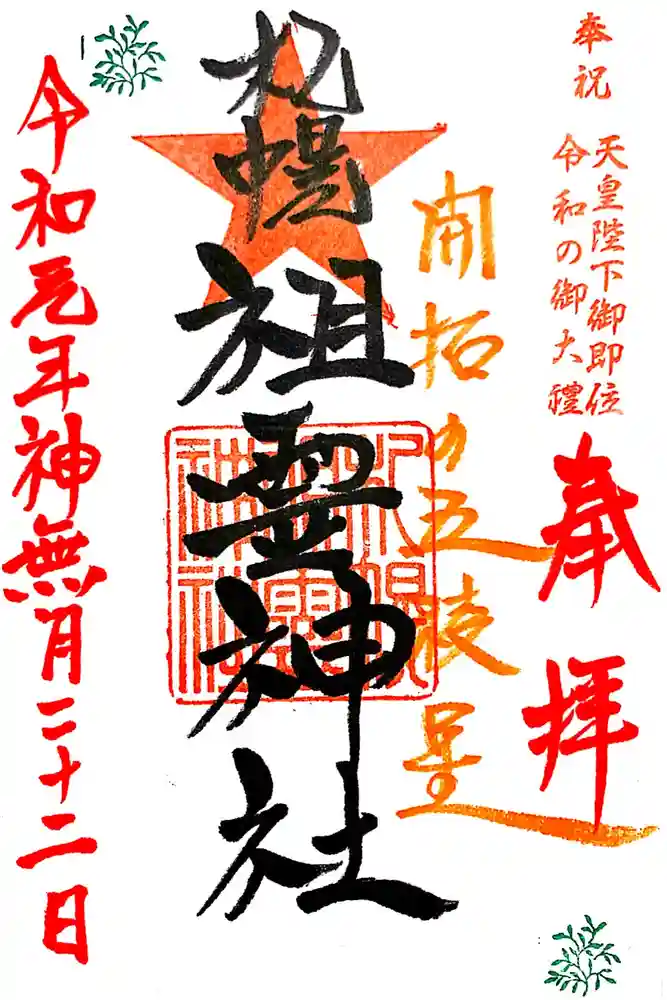 奉祝
天皇陛下御即位
令和の御大禮
奉拝
開拓の五稜星
札幌祖霊神社
令和元年神無月二十二日